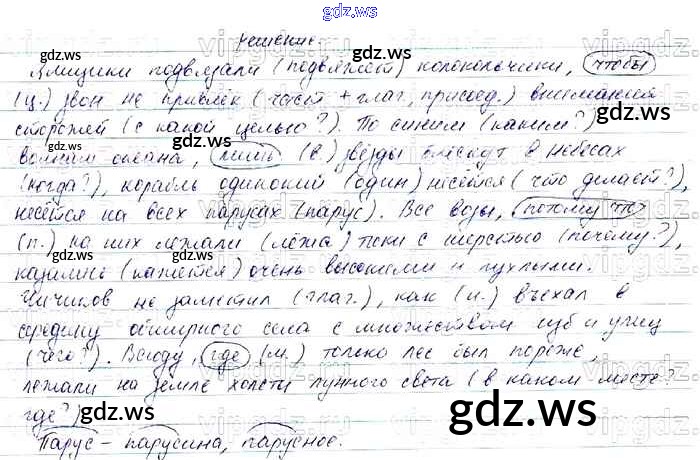 gdz.ws
решение.
gdz.ws
Ямщики подвязали (подвяжет) колокольчики, чтобы
(ц.) звон не привлёк (част + глаг, присоед.) внимания
сторожей (с какой целью?). По синим (каким?)
волнам океана, лишь (в.) звёзды блеснут в небесах
(когда?), корабль одинокий (один) несётся (что делает?),
несётся на всех парусах (парус). Все возы, потому что
(п.) на них лежали (лёжа) тюки с шерстью (почему?),
казались (кажется) очень высокими и пухлыми.
Чичиков не заметил (глаг.), как (и.) въехал в
середину обширного села с множеством изб и улиц
(чего?). Всюду, где (м.) только лес был пореже,
лежали на земле холсты лунного света (в каком месте?
где?)
Парус – парусина, парусное.
gdz.ws
gdz.ws